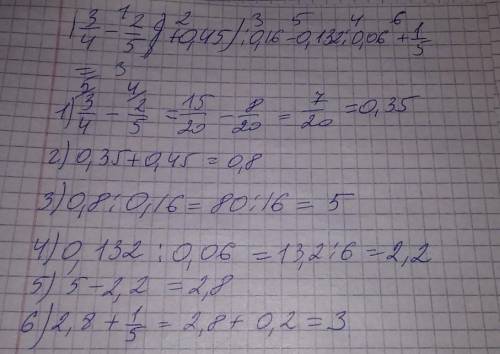 (3/4 -¹ 2/5) +² 0,45) :³ 0,16 -⁵ 0,132 :⁴ 0,06 +⁶ 1/5
= 3
1) 3/4 ⁵ - 2/5 ⁴ = 15/20 - 8/20 = 7/20 = 0,35
2) 0,35 + 0,45 = 0,8
3) 0,8 : 0,16 = 80 : 16 = 5
4) 0,132 : 0,06 = 13,2 : 6 = 2,2
5) 5 - 2,2 = 2,8
6) 2,8 + 1/5 = 2,8 + 0,2 = 3